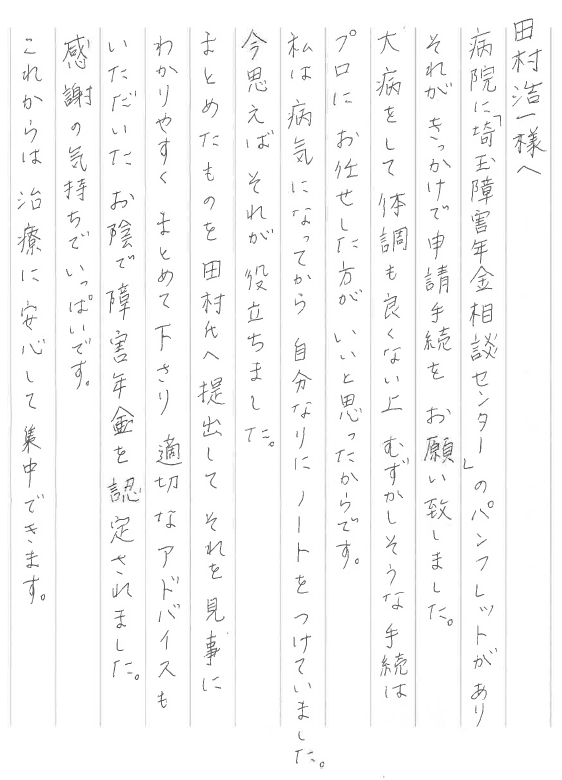 田村浩一様へ
病院に「埼玉障害年金相談センター」のパンフレットがあり
それがきっかけで申請手続を お願い致しました。
大病をして体調も良くない上 むずかしそうな手続は
プロに お任せした方が いいと思ったからです。
私は 病気になってから 自分なりにノートをつけていました。
今思えば それが 役立ちました。
まとめたものを 田村氏へ 提出して それを 見事に
わかりやすく まとめて 下さり 適切な アドバイスも
いただいた お陰で 障害年金を 認定されました。
感謝の気持ちで いっぱいです。
これからは 治療に 安心して 集中できます。